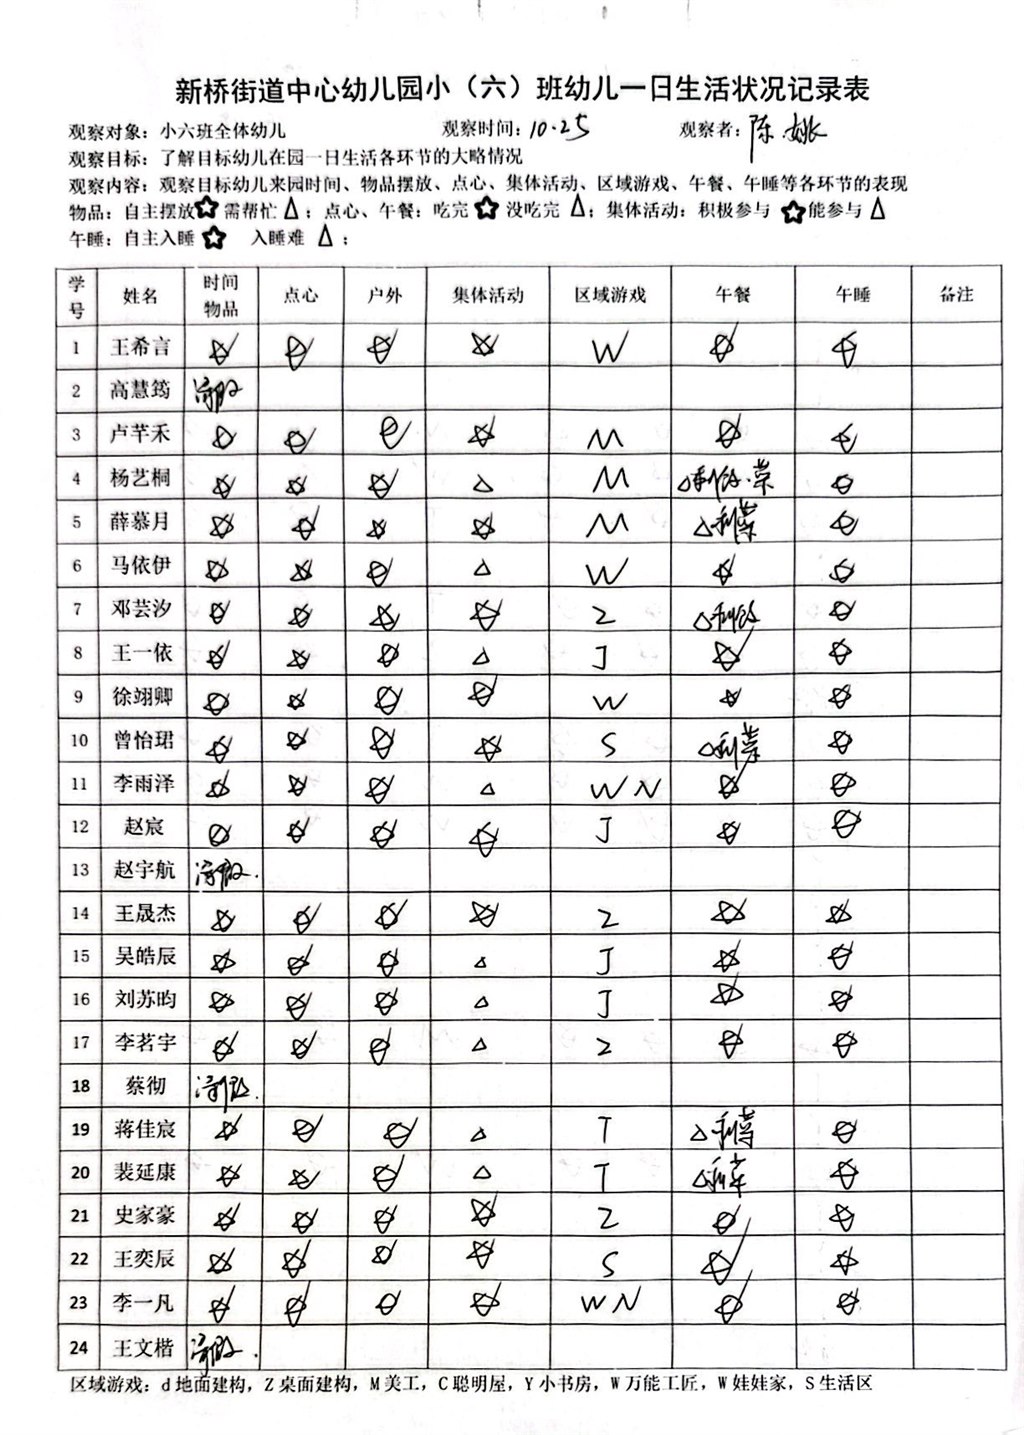 新桥街道中心幼儿园小（六）班幼儿一日生活状况记录表
观察对象：小六班全体幼儿 观察时间：10.25 观察者：陈 姚
观察目标：了解目标幼儿在园一日生活各环节的大略情况
观察内容：观察目标幼儿来园时间、物品摆放、点心、集体活动、区域游戏、午餐、午睡等各环节的表现
物品：自主摆放☆需帮忙△；点心、午餐：吃完☆没吃完△；集体活动：积极参与☆能参与△
午睡：自主入睡☆ 入睡难△；
学号 姓名 时间物品 点心 户外 集体活动 区域游戏 午餐 午睡 备注
1 王希言 ☆ ☆ ☆ ☆ W ☆ ☆
2 高慧筠
3 卢芊禾 ☆ ☆ ☆ ☆ M ☆ ☆
4 杨艺桐 ☆ ☆ ☆ △ M △剩饭.菜 ☆
5 薛慕月 ☆ ☆ ☆ ☆ M △剩菜 ☆
6 马依伊 ☆ ☆ ☆ △ W ☆ ☆
7 邓芸汐 ☆ ☆ ☆ ☆ Z △剩饭 ☆
8 王一依 ☆ ☆ ☆ △ J ☆ ☆
9 徐翊卿 ☆ ☆ ☆ ☆ W ☆ ☆
10 曾怡珺 ☆ ☆ ☆ ☆ S △剩菜 ☆
11 李雨泽 ☆ ☆ ☆ △ W N ☆ ☆
12 赵宸 ☆ ☆ ☆ ☆ J ☆ ☆
13 赵宇航
14 王晟杰 ☆ ☆ ☆ ☆ Z ☆ ☆
15 吴皓辰 ☆ ☆ ☆ △ J ☆ ☆
16 刘苏昀 ☆ ☆ ☆ △ J ☆ ☆
17 李茗宇 ☆ ☆ ☆ △ Z ☆ ☆
18 蔡彻
19 蒋佳宸 ☆ ☆ ☆ △ T △剩菜 ☆
20 裴延康 ☆ ☆ ☆ △ T △剩菜 ☆
21 史家豪 ☆ ☆ ☆ ☆ Z ☆ ☆
22 王奕辰 ☆ ☆ ☆ ☆ S ☆ ☆
23 李一凡 ☆ ☆ ☆ ☆ W N ☆ ☆
24 王文楷
区域游戏：d 地面建构，Z 桌面建构，M 美工，C 聪明屋，Y 小书房，W 万能工匠，W 娃娃家，S 生活区